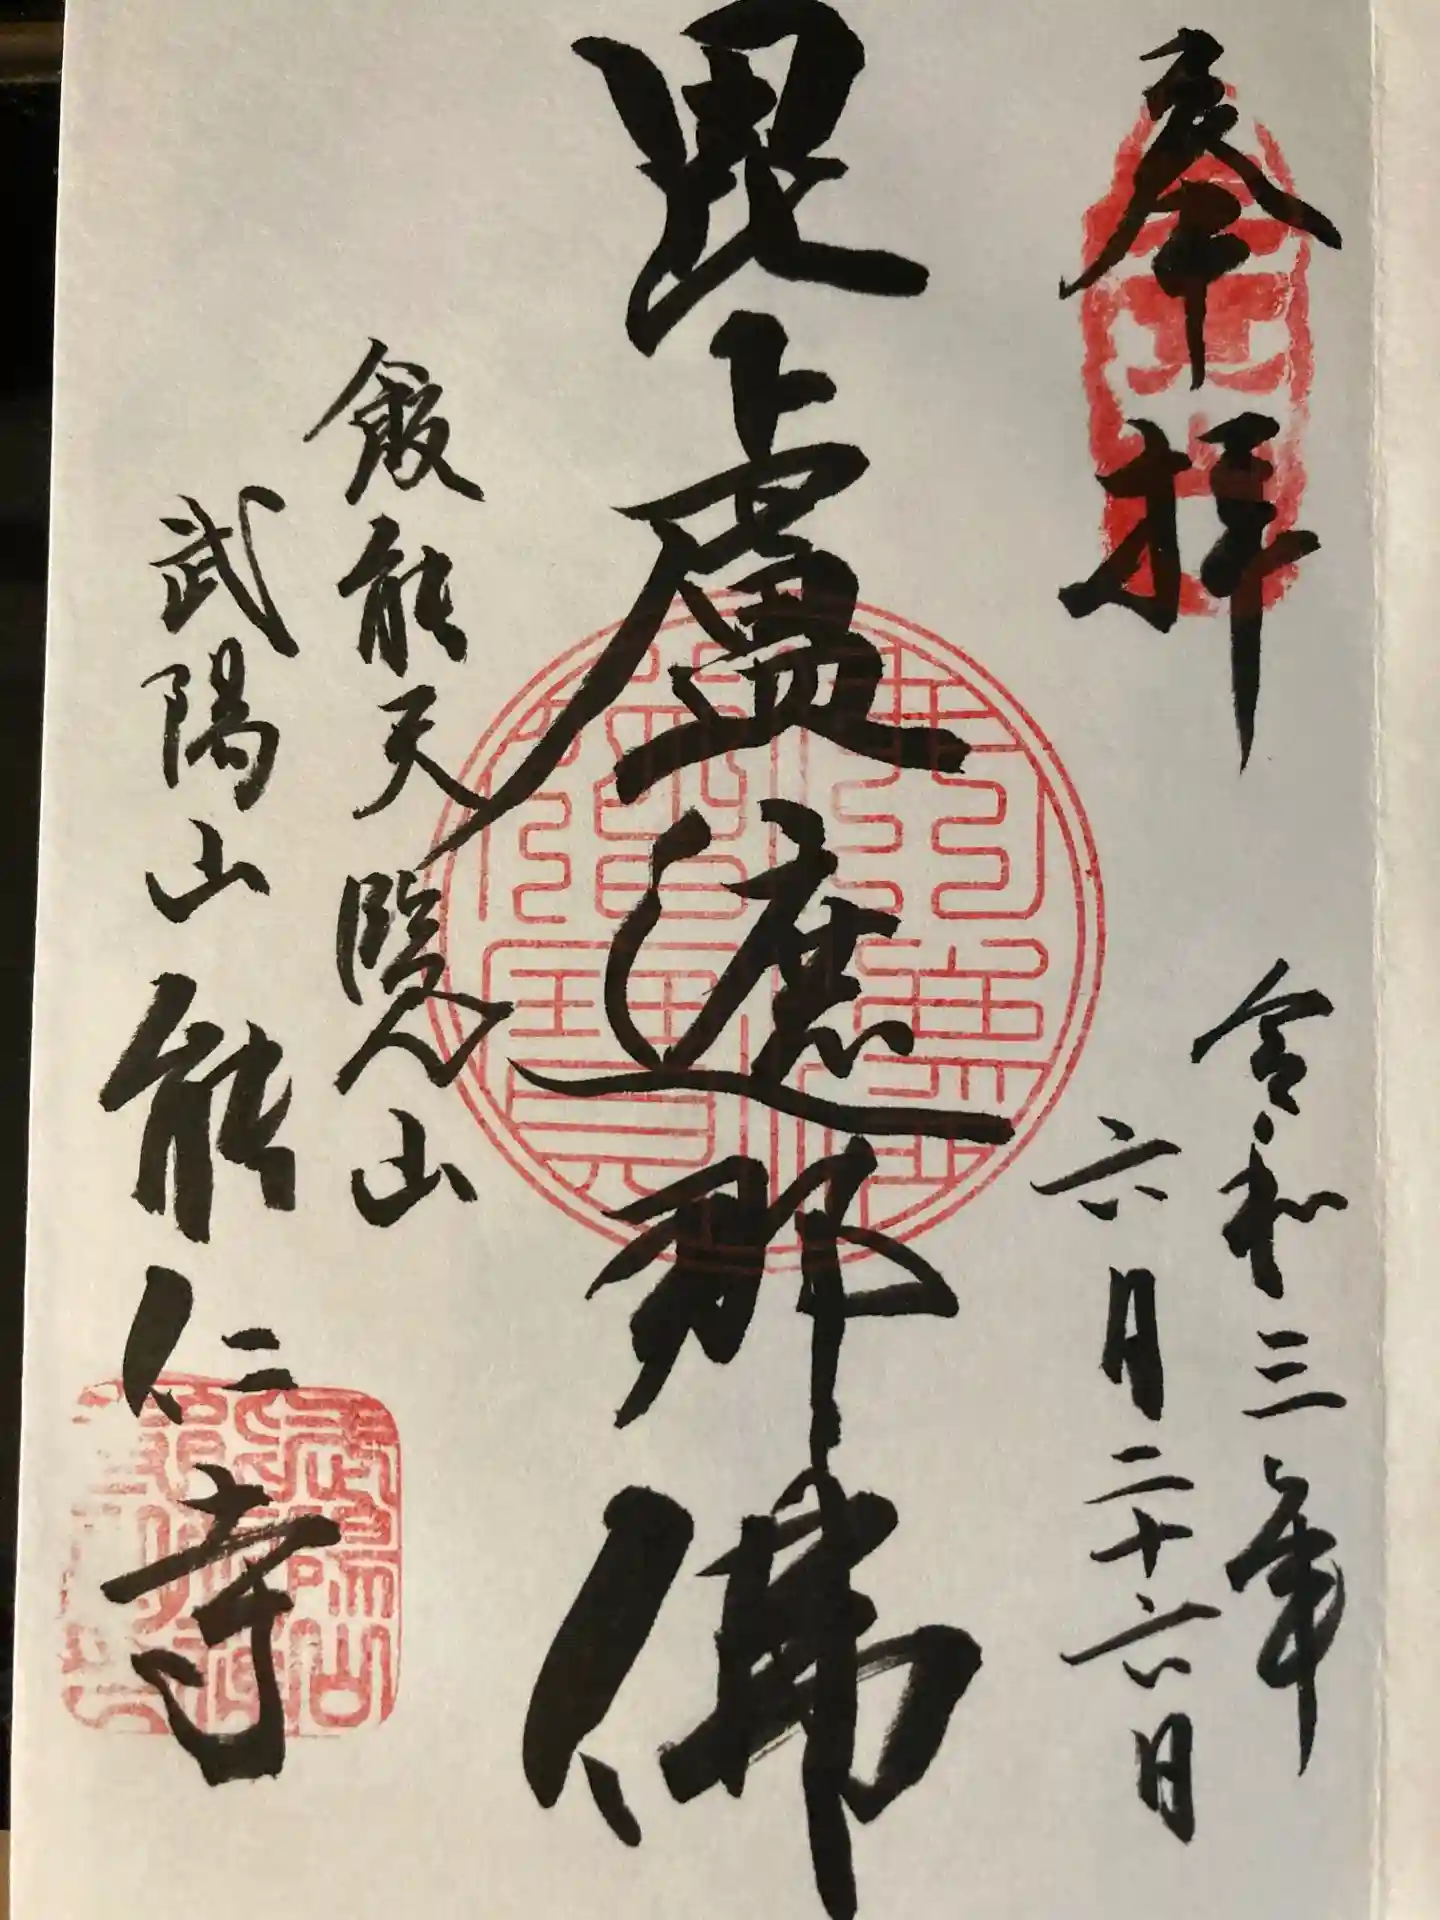 奉拝
令和三年
六月二十六日
毘盧遮那佛
飯能天覧山
武陽山能仁寺